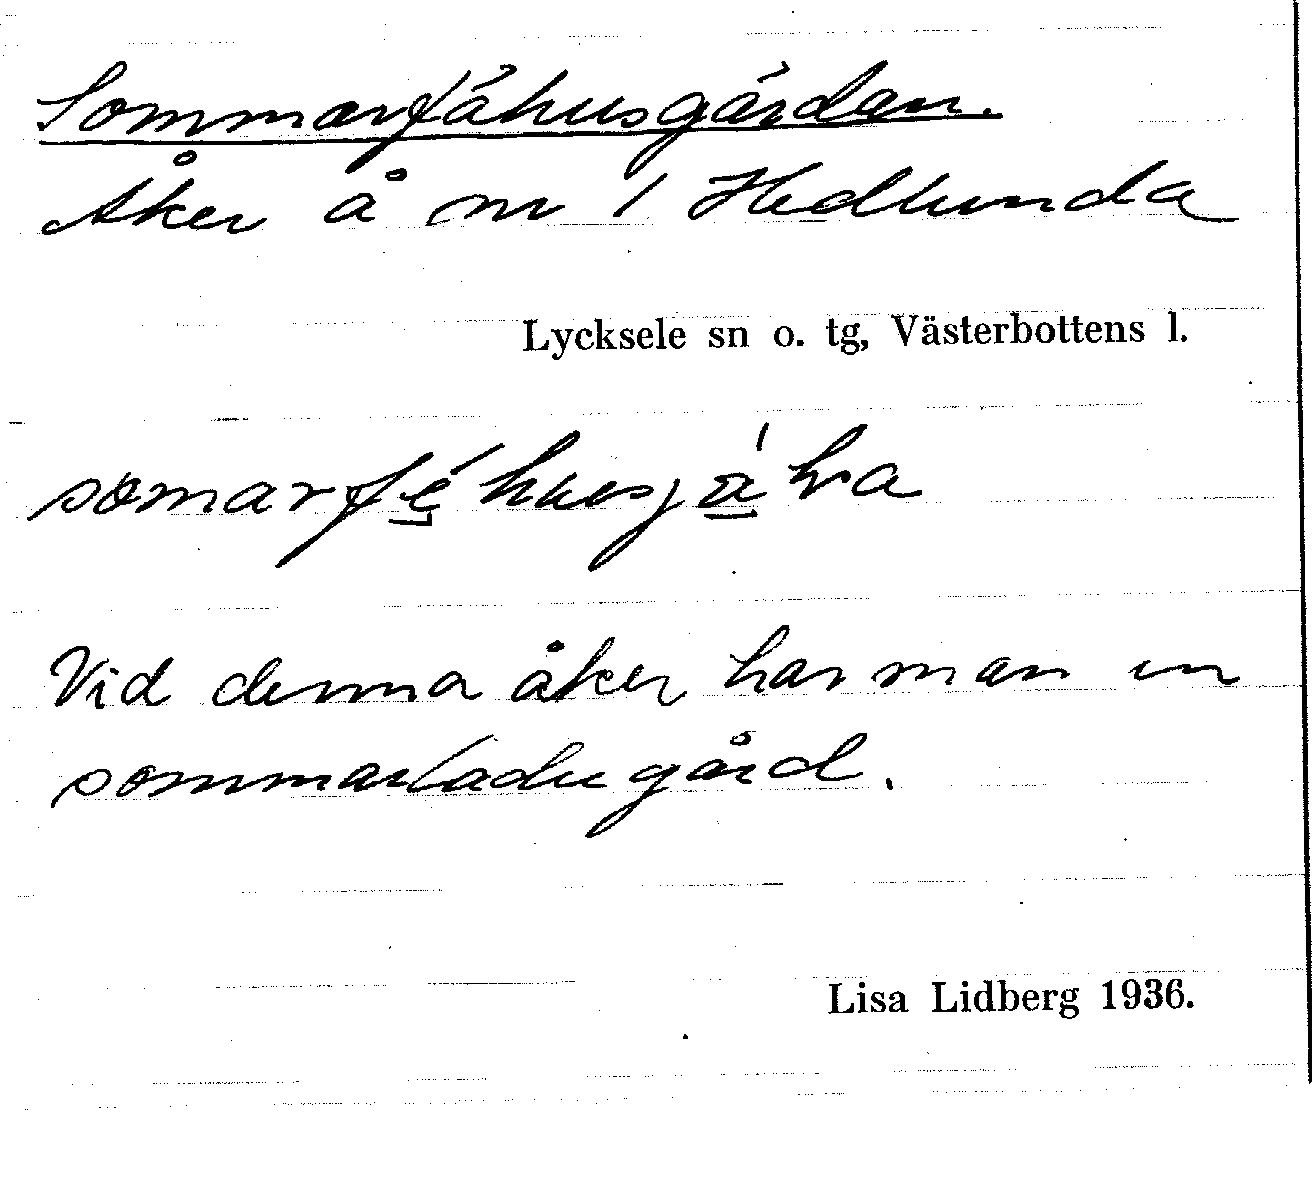 Sommarfähusgärdan.
Åker å nr 1 Hedlunda
Lycksele sn o. tg, Västerbottens l.
somarfé̱husjá̱ḷa
Vid denna åker har man en
sommarladugård.
Lisa Lidberg 1936.